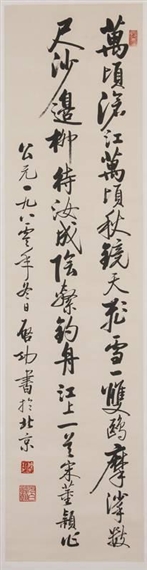 萬頃滄江萬頃秋鏡天飛雪一雙鷗摩挲數
尺沙邊柳待汝成陰繫釣舟 江上一首 宋董穎作
公元一九八零年冬日 啟功書於北京